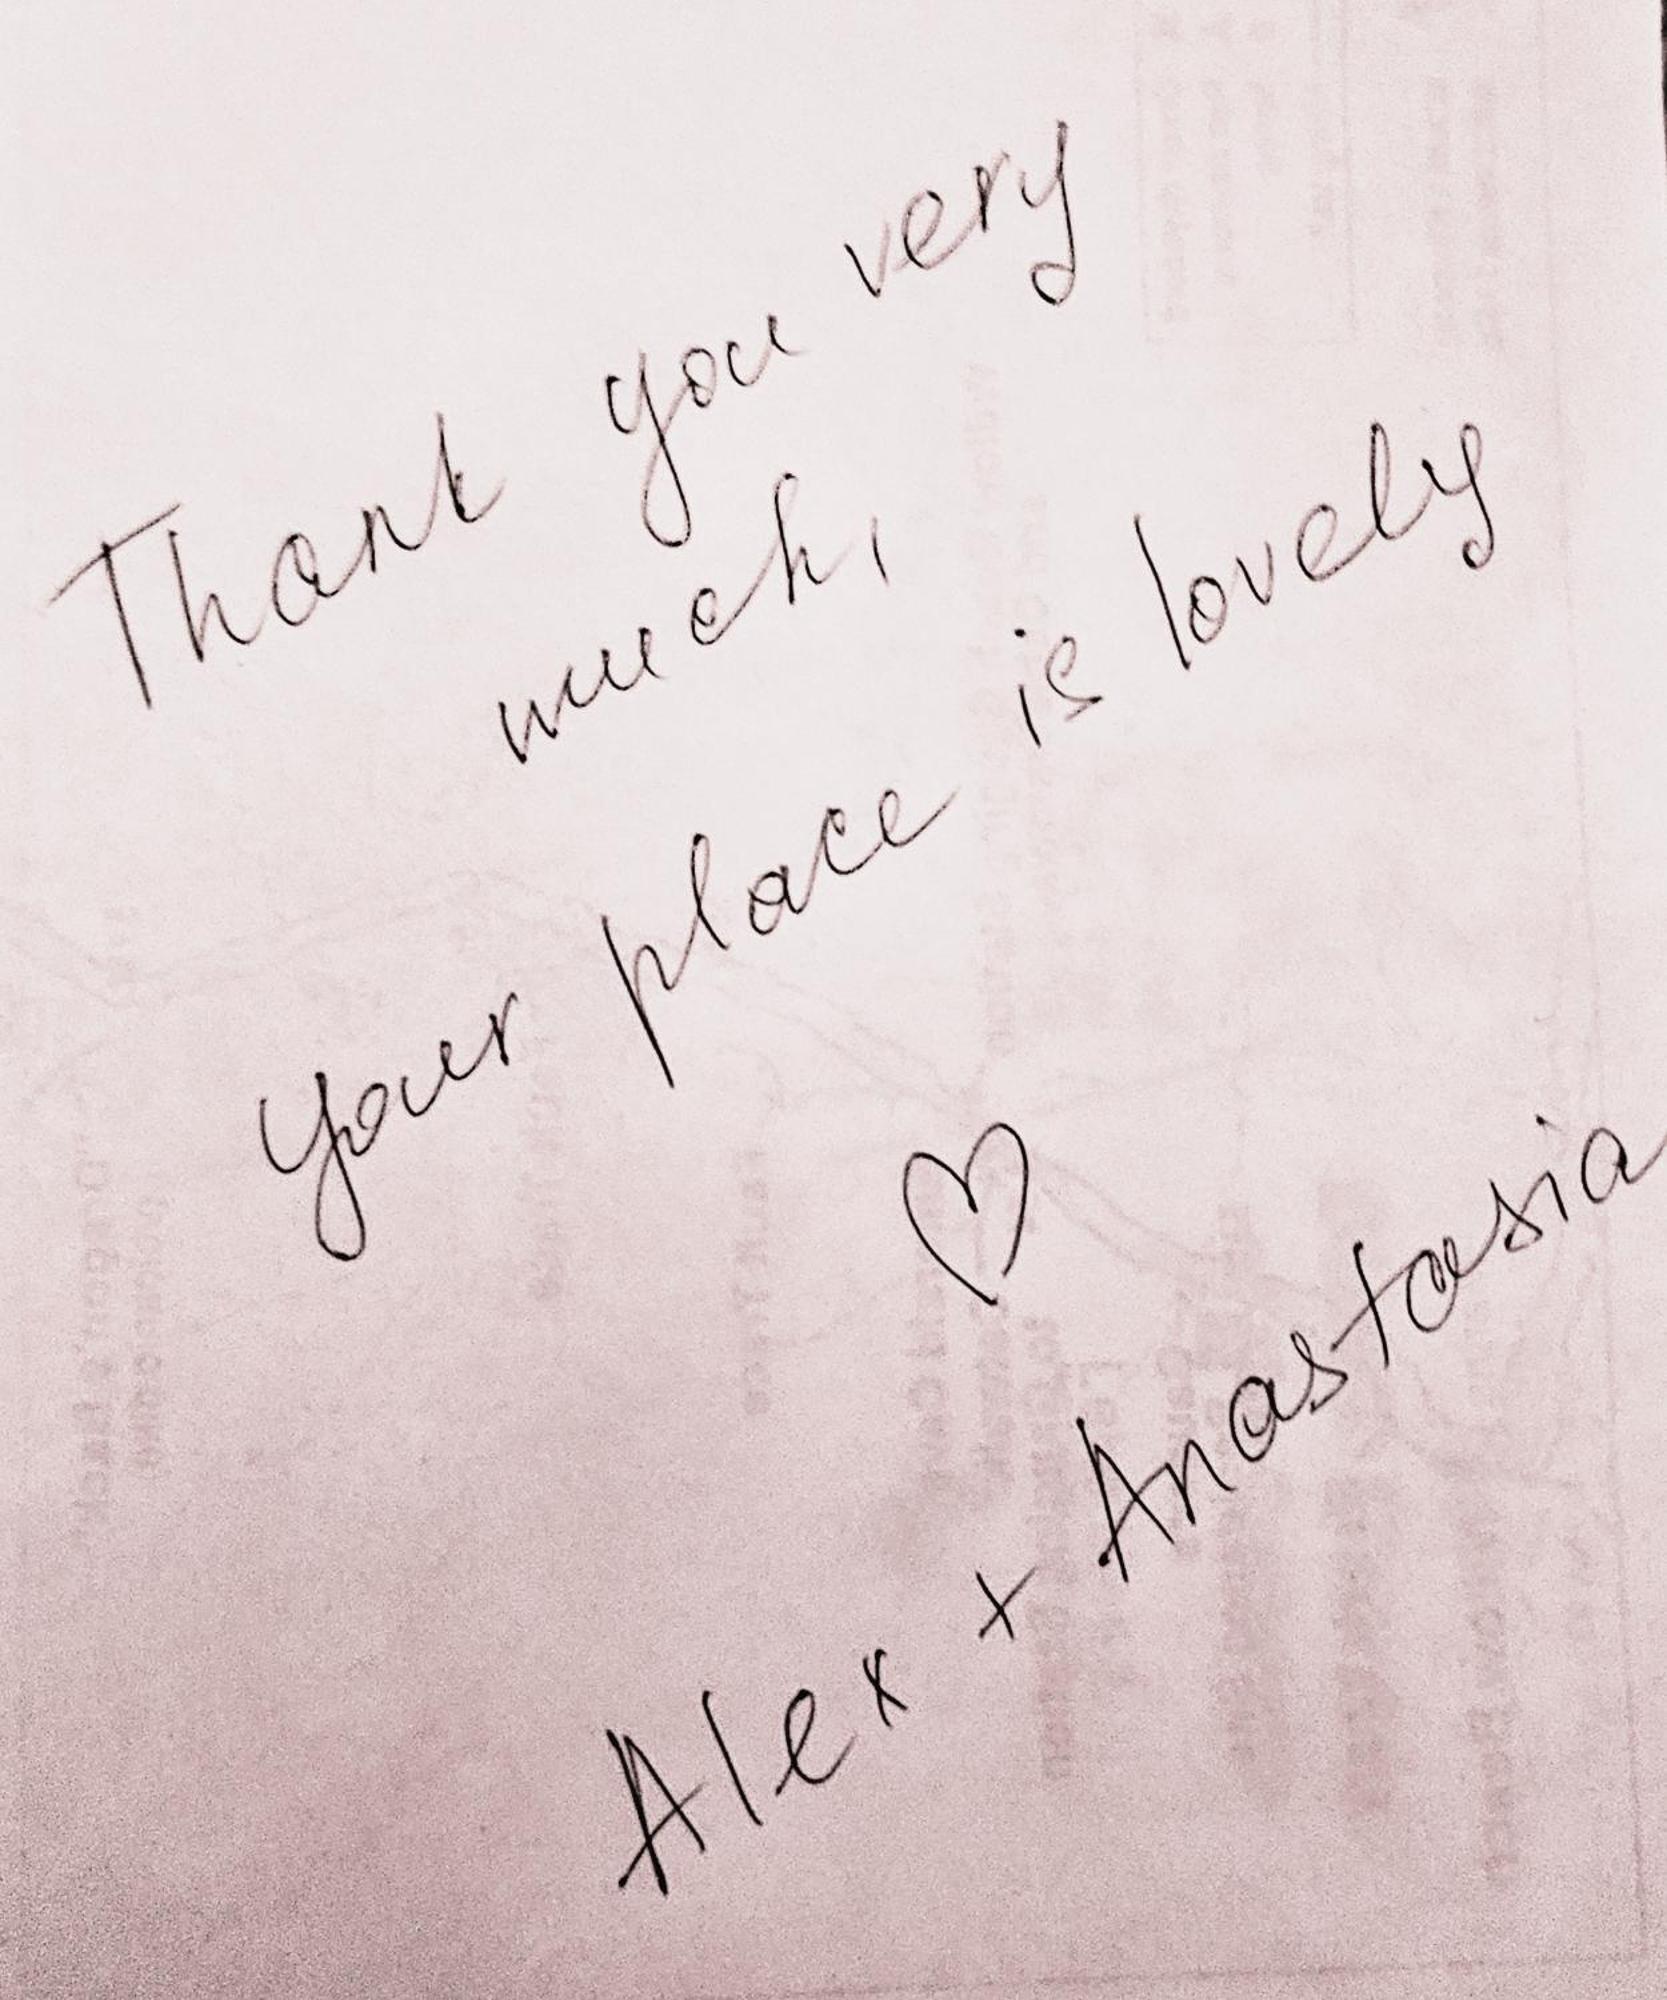 Thank you very
much,
your place is lovely
♡
Alex + Anastasia